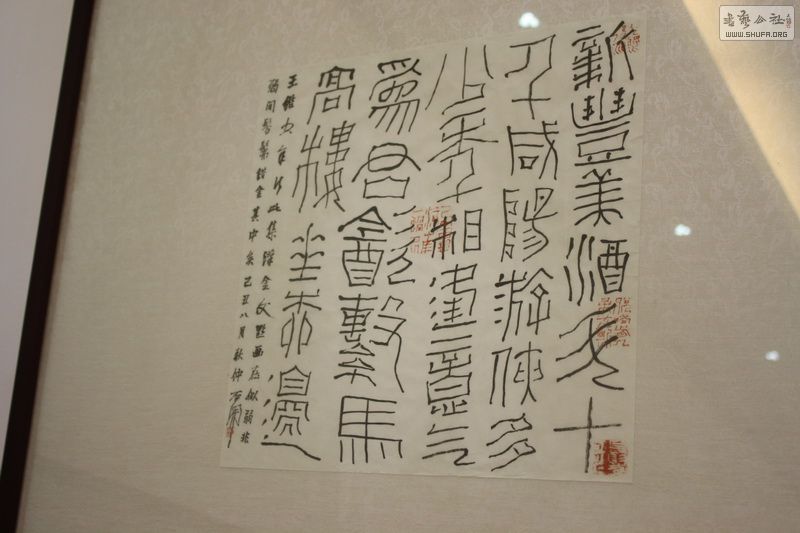 新豐美酒斗十
千咸陽游俠多
少年相逢意气
為君飲繫馬
高樓垂柳邊
王維少年行此集鐸金文画似弱非
弱间金其中矣己丑八月秋仲
書藝公社
WWW.SHUFA.ORG